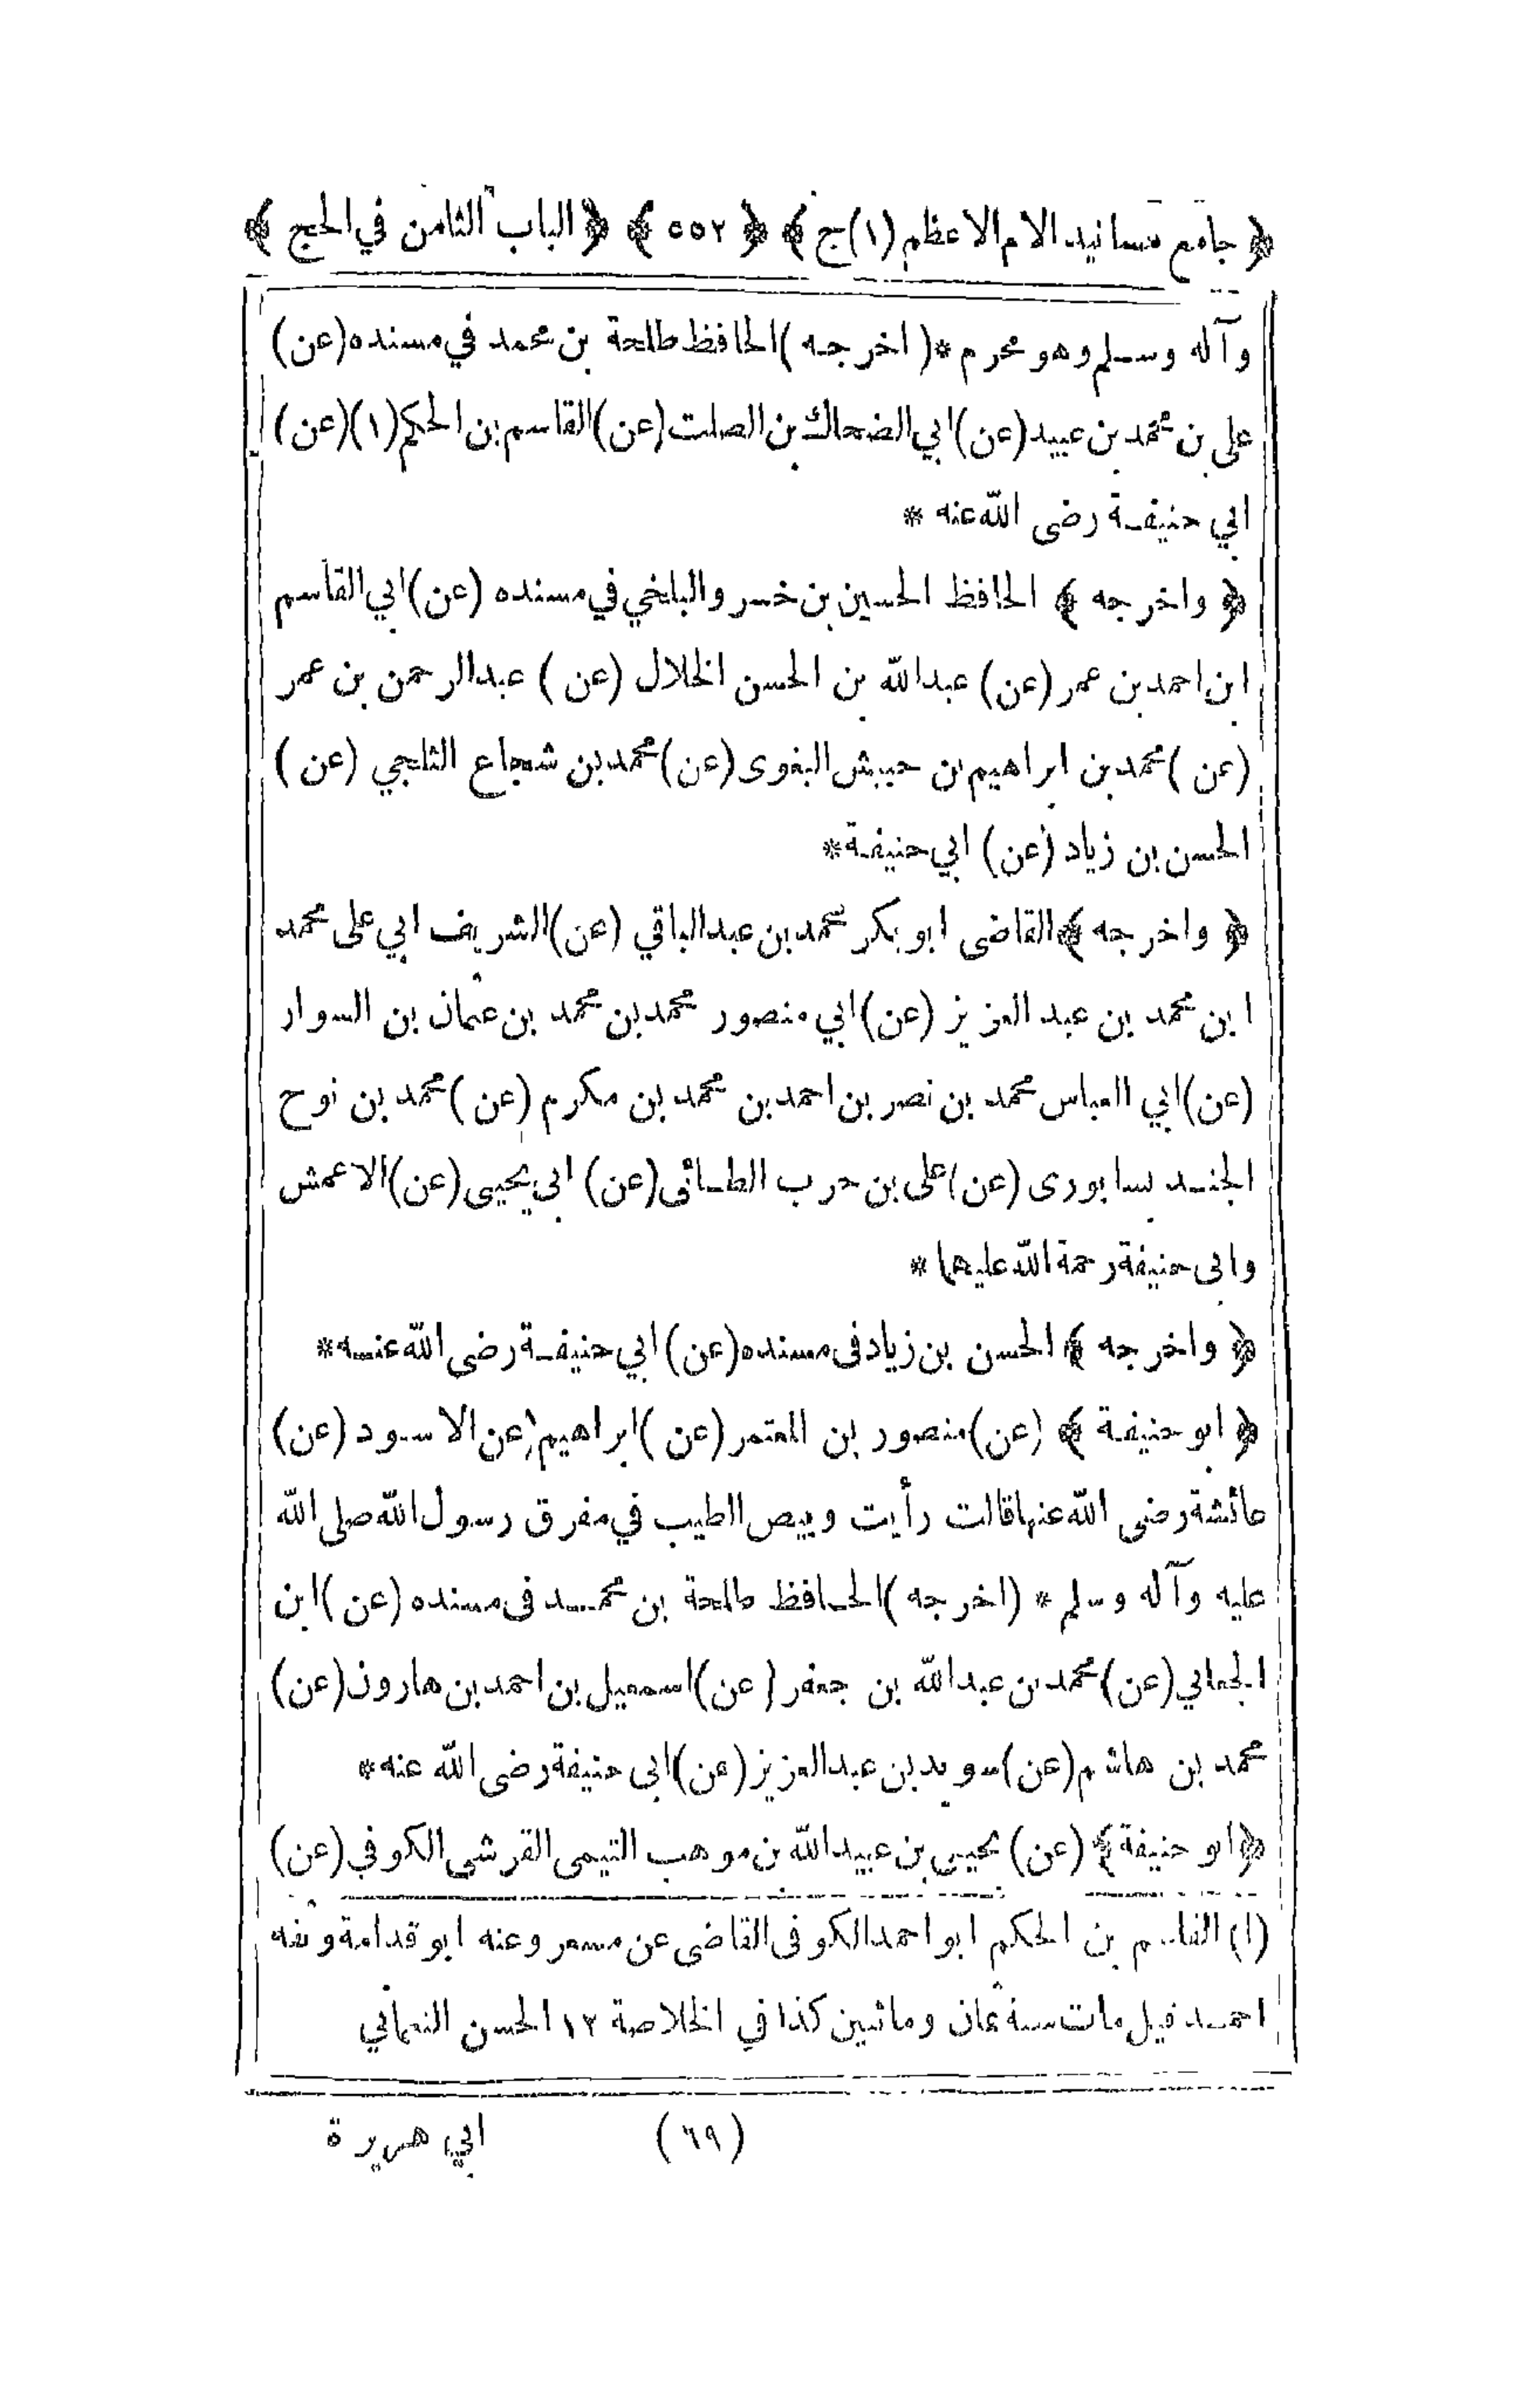 ﴿ جامع مسانيد الامام الاعظم (١) ج ﴾ ﴿ ٥٥٢ ﴾ ﴿ الباب الثامن في الحج ﴾
وآله وسلم وهو محرم *( اخرجه )الحافظ طلحة بن محمد في مسنده (عن)
علي بن محمد بن عبيد (عن) ابي الضحاك بن الصلت (عن) القاسم بن الحكم (١)(عن)
ابي حنيفة رضى الله عنه *
﴿ واخرجه ﴾ الحافظ الحسين بن خسرو البلخي في مسنده (عن) ابي القاسم
ابن احمد بن عمر (عن) عبدالله بن الحسن الخلال (عن ) عبدالرحمن بن عمر
(عن ) محمد بن ابراهيم بن حبيش البغوى (عن) محمد بن شجاع الثلجي (عن )
الحسن بن زياد (عن) ابي حنيفة *
﴿ واخرجه ﴾ القاضى ابو بكر محمد بن عبدالباقي (عن) الشريف ابي على محمد
ابن محمد بن عبد العزيز (عن) ابي منصور محمد بن محمد بن عثمان بن السوار
(عن) ابي العباس محمد بن نصر بن احمد بن محمد بن مكرم (عن ) محمد بن نوح
الجند يسابورى (عن) على بن حرب الطائى (عن) ابي يحيى (عن) الاعمش
وابى حنيفة رحمة الله عليهما *
﴿ واخرجه ﴾ الحسن بن زياد فى مسنده (عن) ابي حنيفة رضى الله عنه *
﴿ ابو حنيفة ﴾ (عن) منصور بن المعتمر (عن ) ابراهيم (عن الاسود (عن)
عائشة رضى الله عنها قالت رأيت وبيص الطيب في مفرق رسول الله صلى الله
عليه وآله وسلم * (اخرجه ) الحافظ طلحة بن محمد فى مسنده (عن ) ابن
الجعابي (عن) محمد بن عبدالله بن جعفر (عن) اسمعيل بن احمد بن هارون (عن)
محمد بن هاشم (عن) سويد بن عبدالعزيز (عن) ابى حنيفة رضى الله عنه *
﴿ ابو حنيفة ﴾ (عن) يحيى بن عبيدالله بن موهب التيمى القرشى الكوفي (عن)
(١) القاسم بن الحكم ابو احمد الكوفى القاضى عن مسعر وعنه ابو قدامة وثقه
احمد قيل مات سنة ثمان ومائتين كذا في الخلاصة ١٢ الحسن النعماني
(٦٩) ابي هريرة